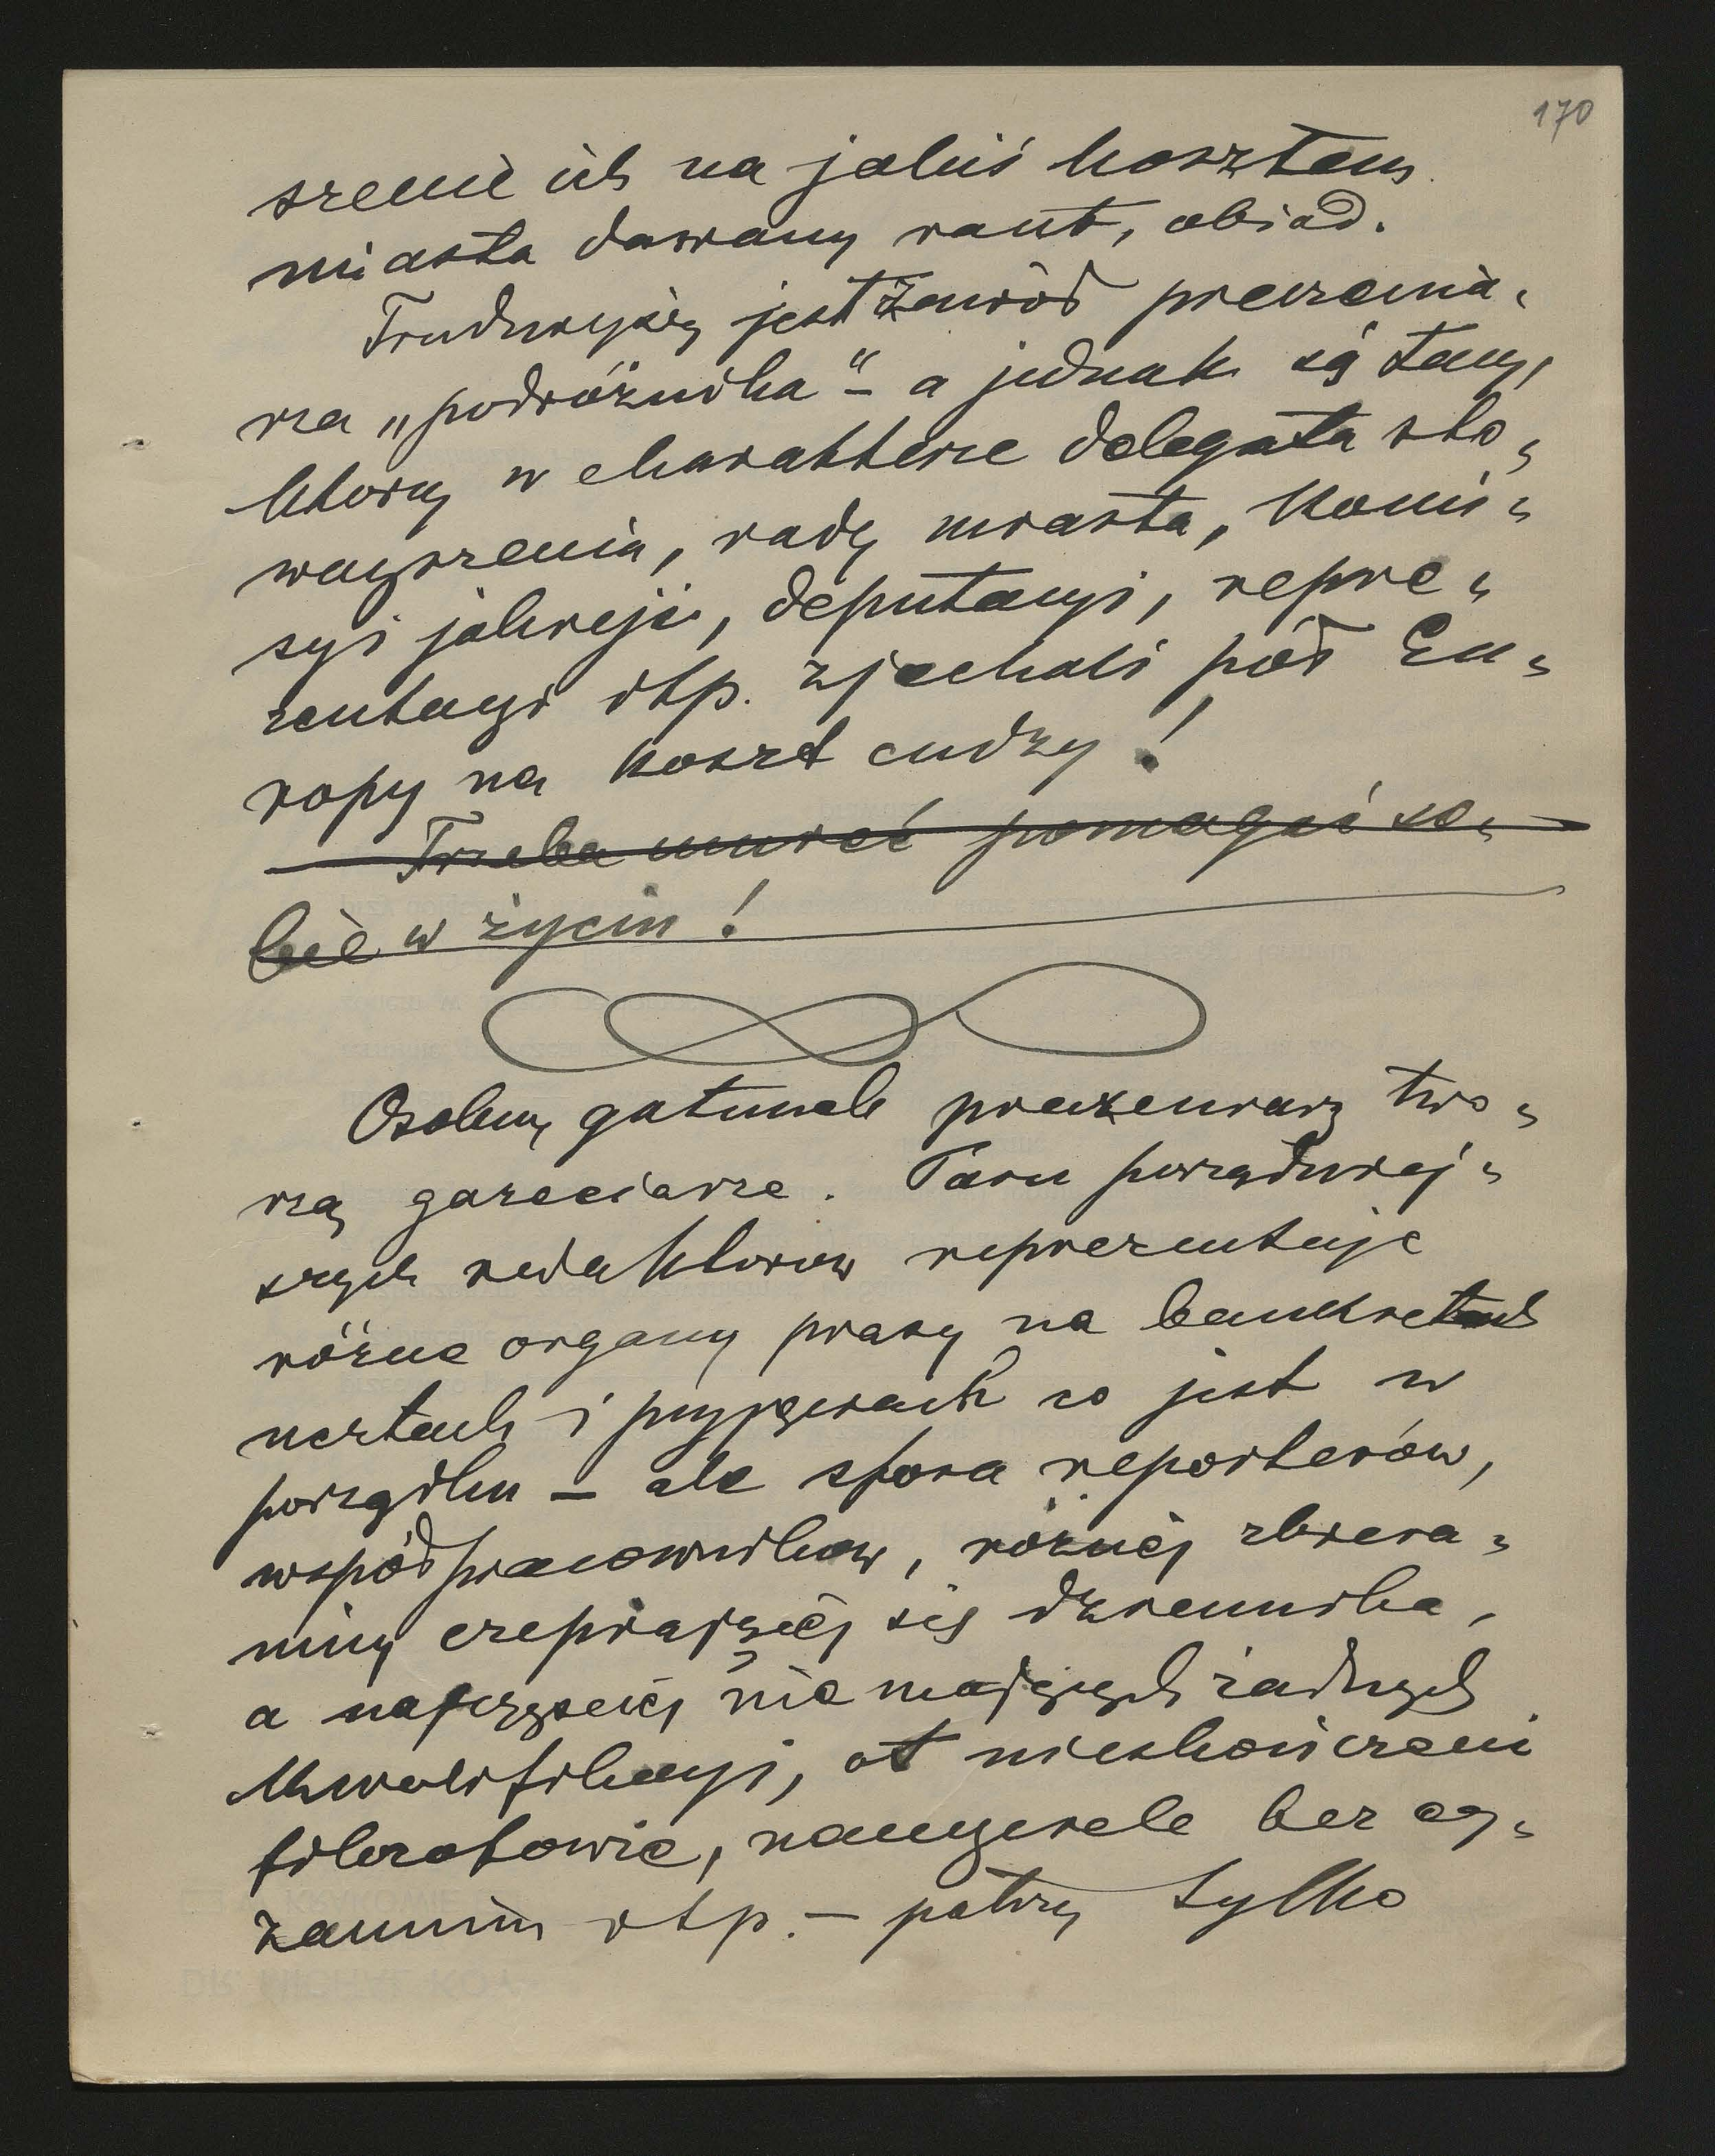 170
szenie ich na jakiś kosztem
miasta dawany raut, obiad.
Trudniejszy jest zawód pieczenia-
rza „podróżnika" – a jednak są tacy,
którzy w charakterze delegata sto-
warzyszenia, rady miasta, komi-
syi jakiejś, deputacyi, repre-
zentacyi itp. zjechali pół Eu-
ropy na koszt cudzy!
Trzeba umieć pomagać so-
bie w życiu!
Osobny gatunek pieczeniarzy two-
rzą gazeciarze. Paru porządniej-
szych redaktorów reprezentuje
różne organy prasy na bankietach
ucztach i przyjęciach co jest w
porządku – ale sfora reporterów,
współpracowników, różnej zbiera-
niny czepiającej się dziennika,
a najczęściej nie mających żadnych
kwalifikacyi, ot nieskończeni
filozofowie, nauczyciele bez eg-
zaminu itp. – patrzy tylko